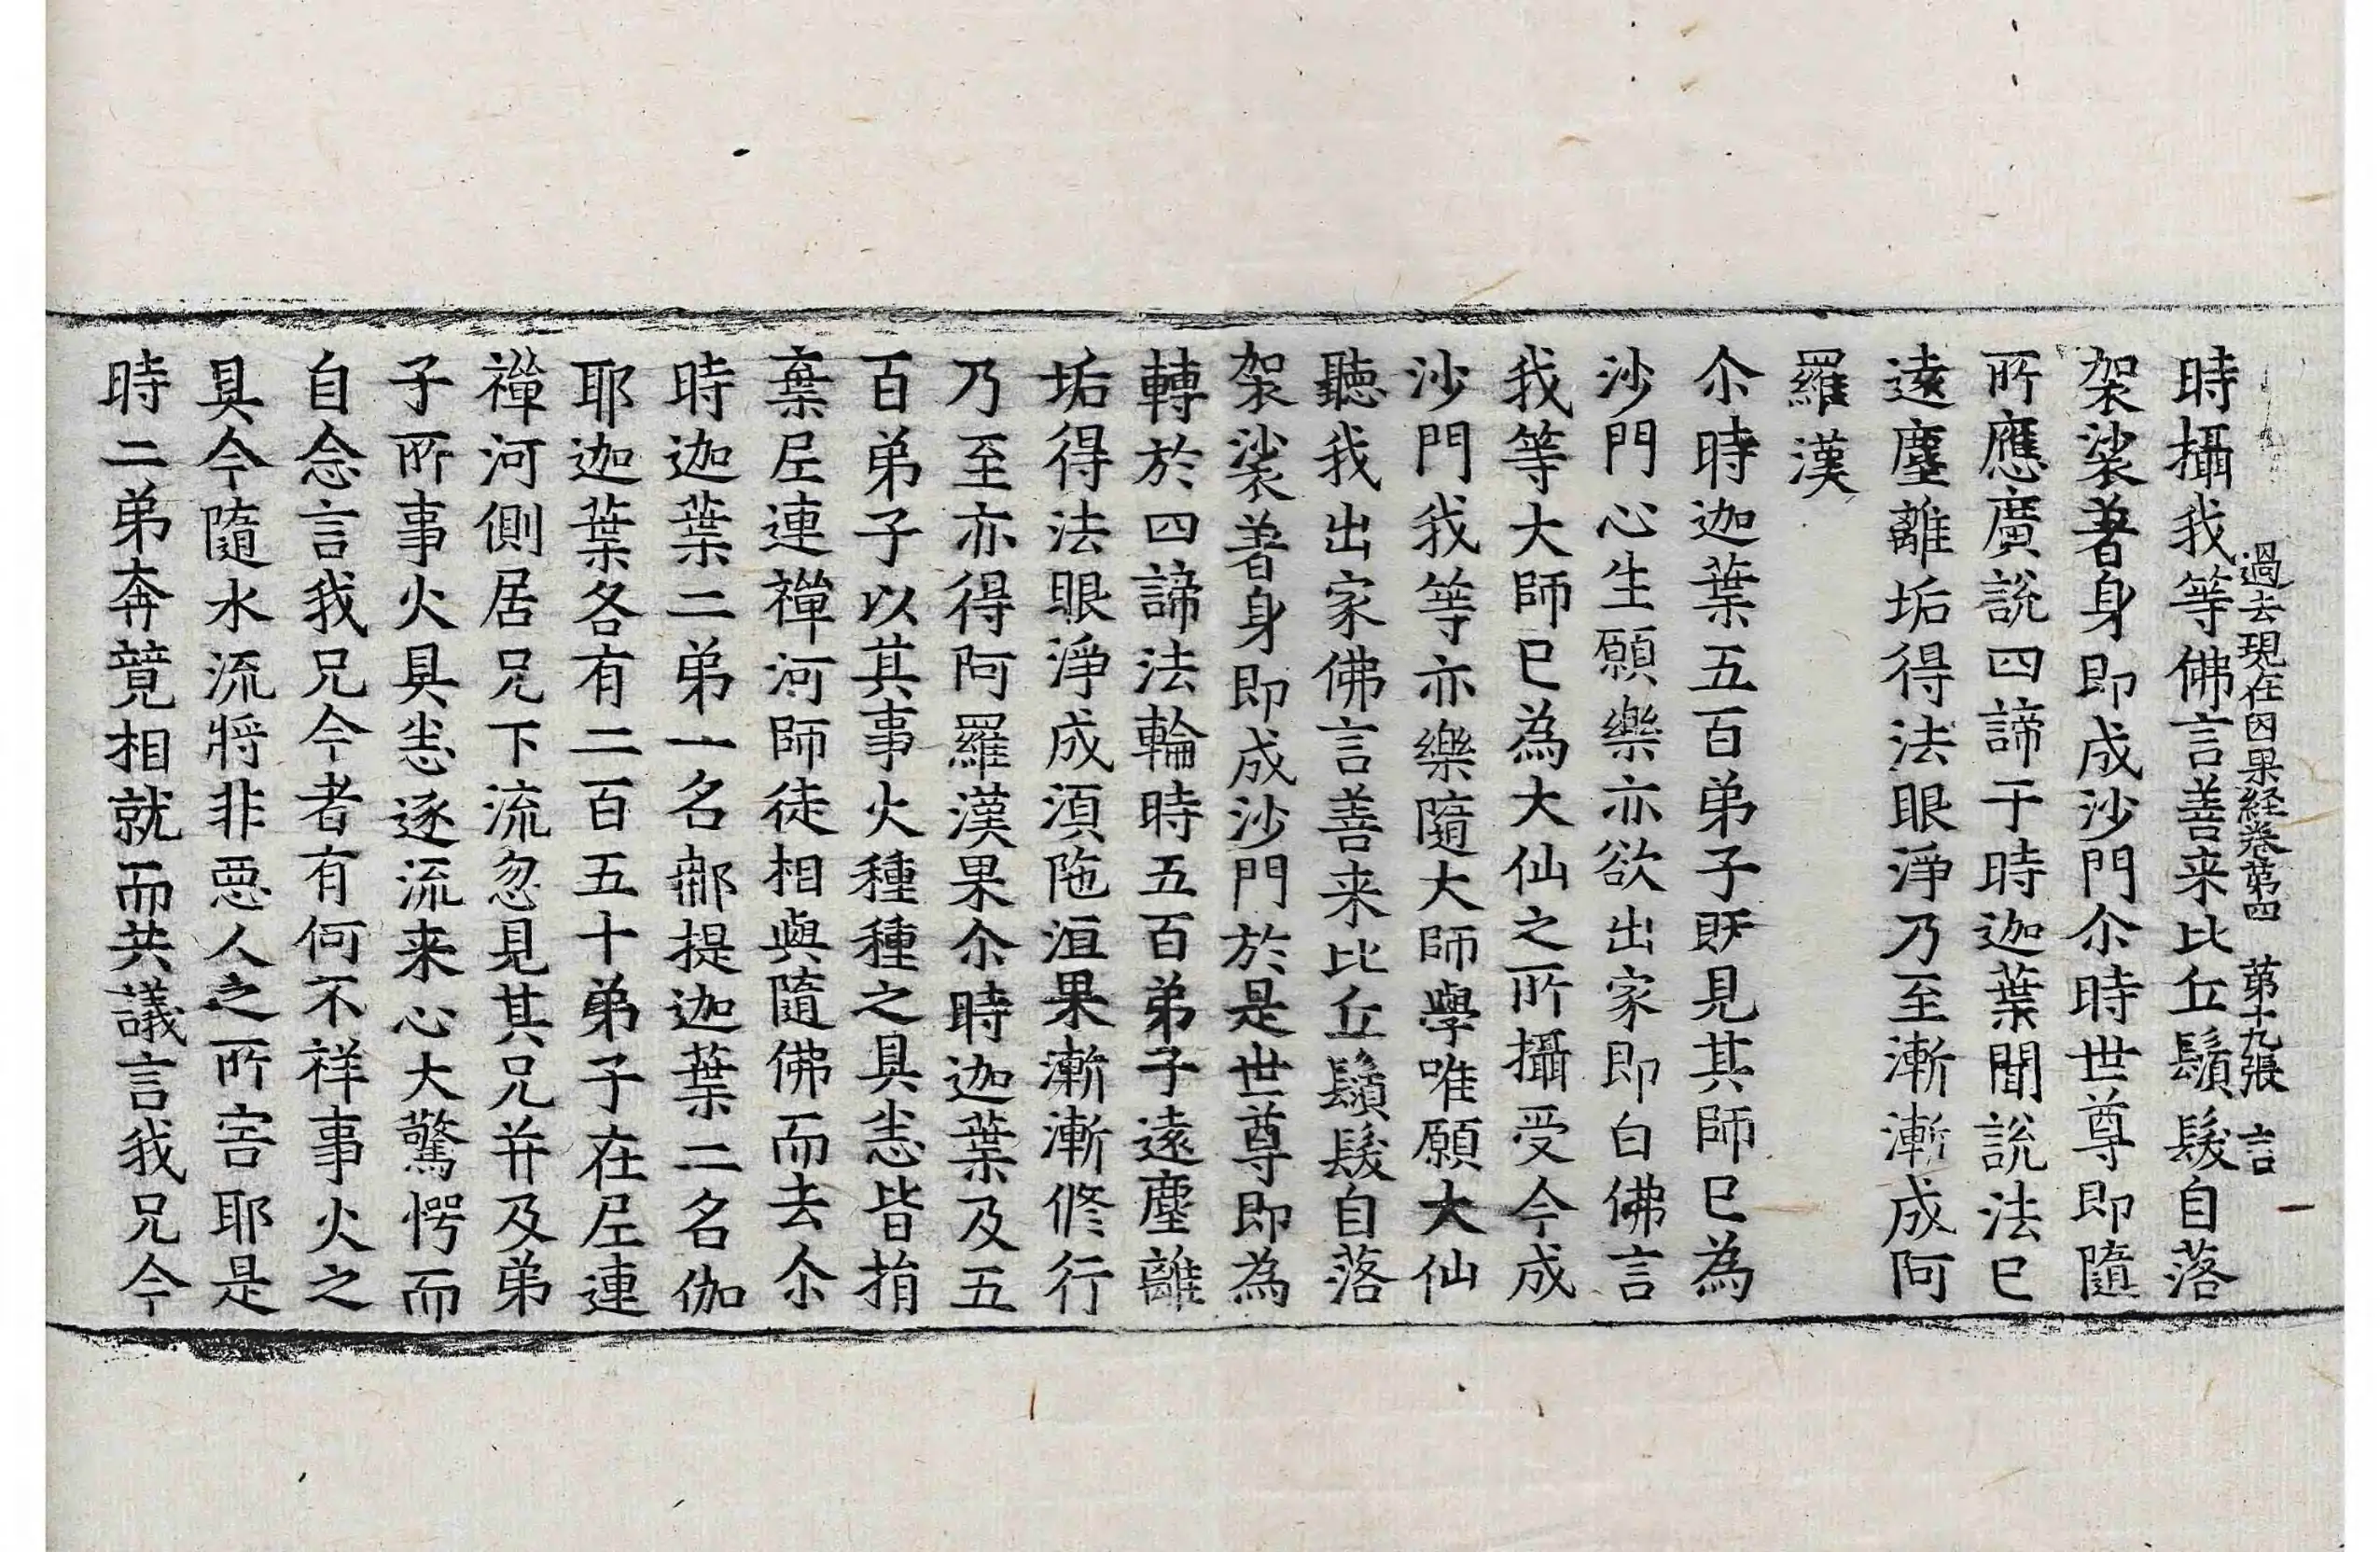 過去現在因果経卷第四　第十九張　言
時攝我等佛言善来比丘鬚髮自落
袈裟著身即成沙門尒時世尊即隨
所應廣說四諦于時迦葉聞說法已
遠塵離垢得法眼淨乃至漸漸成阿
羅漢
尒時迦葉五百弟子既見其師已為
沙門心生願樂亦欲出家即白佛言
我等大師已為大仙之所攝受今成
沙門我等亦樂隨大師學唯願大仙
聽我出家佛言善来比丘鬚髮自落
袈裟著身即成沙門於是世尊即為
轉於四諦法輪時五百弟子遠塵離
垢得法眼淨成須陁洹果漸漸修行
乃至亦得阿羅漢果尒時迦葉及五
百弟子以其事火種種之具悉皆捐
棄尼連禪河師徒相與隨佛而去尒
時迦葉二弟一名那提迦葉二名伽
耶迦葉各有二百五十弟子在尼連
禪河側居兄下流忽見其兄并及弟
子所事火具悉逐流来心大驚愕而
自念言我兄今者有何不祥事火之
具今隨水流將非惡人之所害耶是
時二弟奔競相就而共議言我兄今